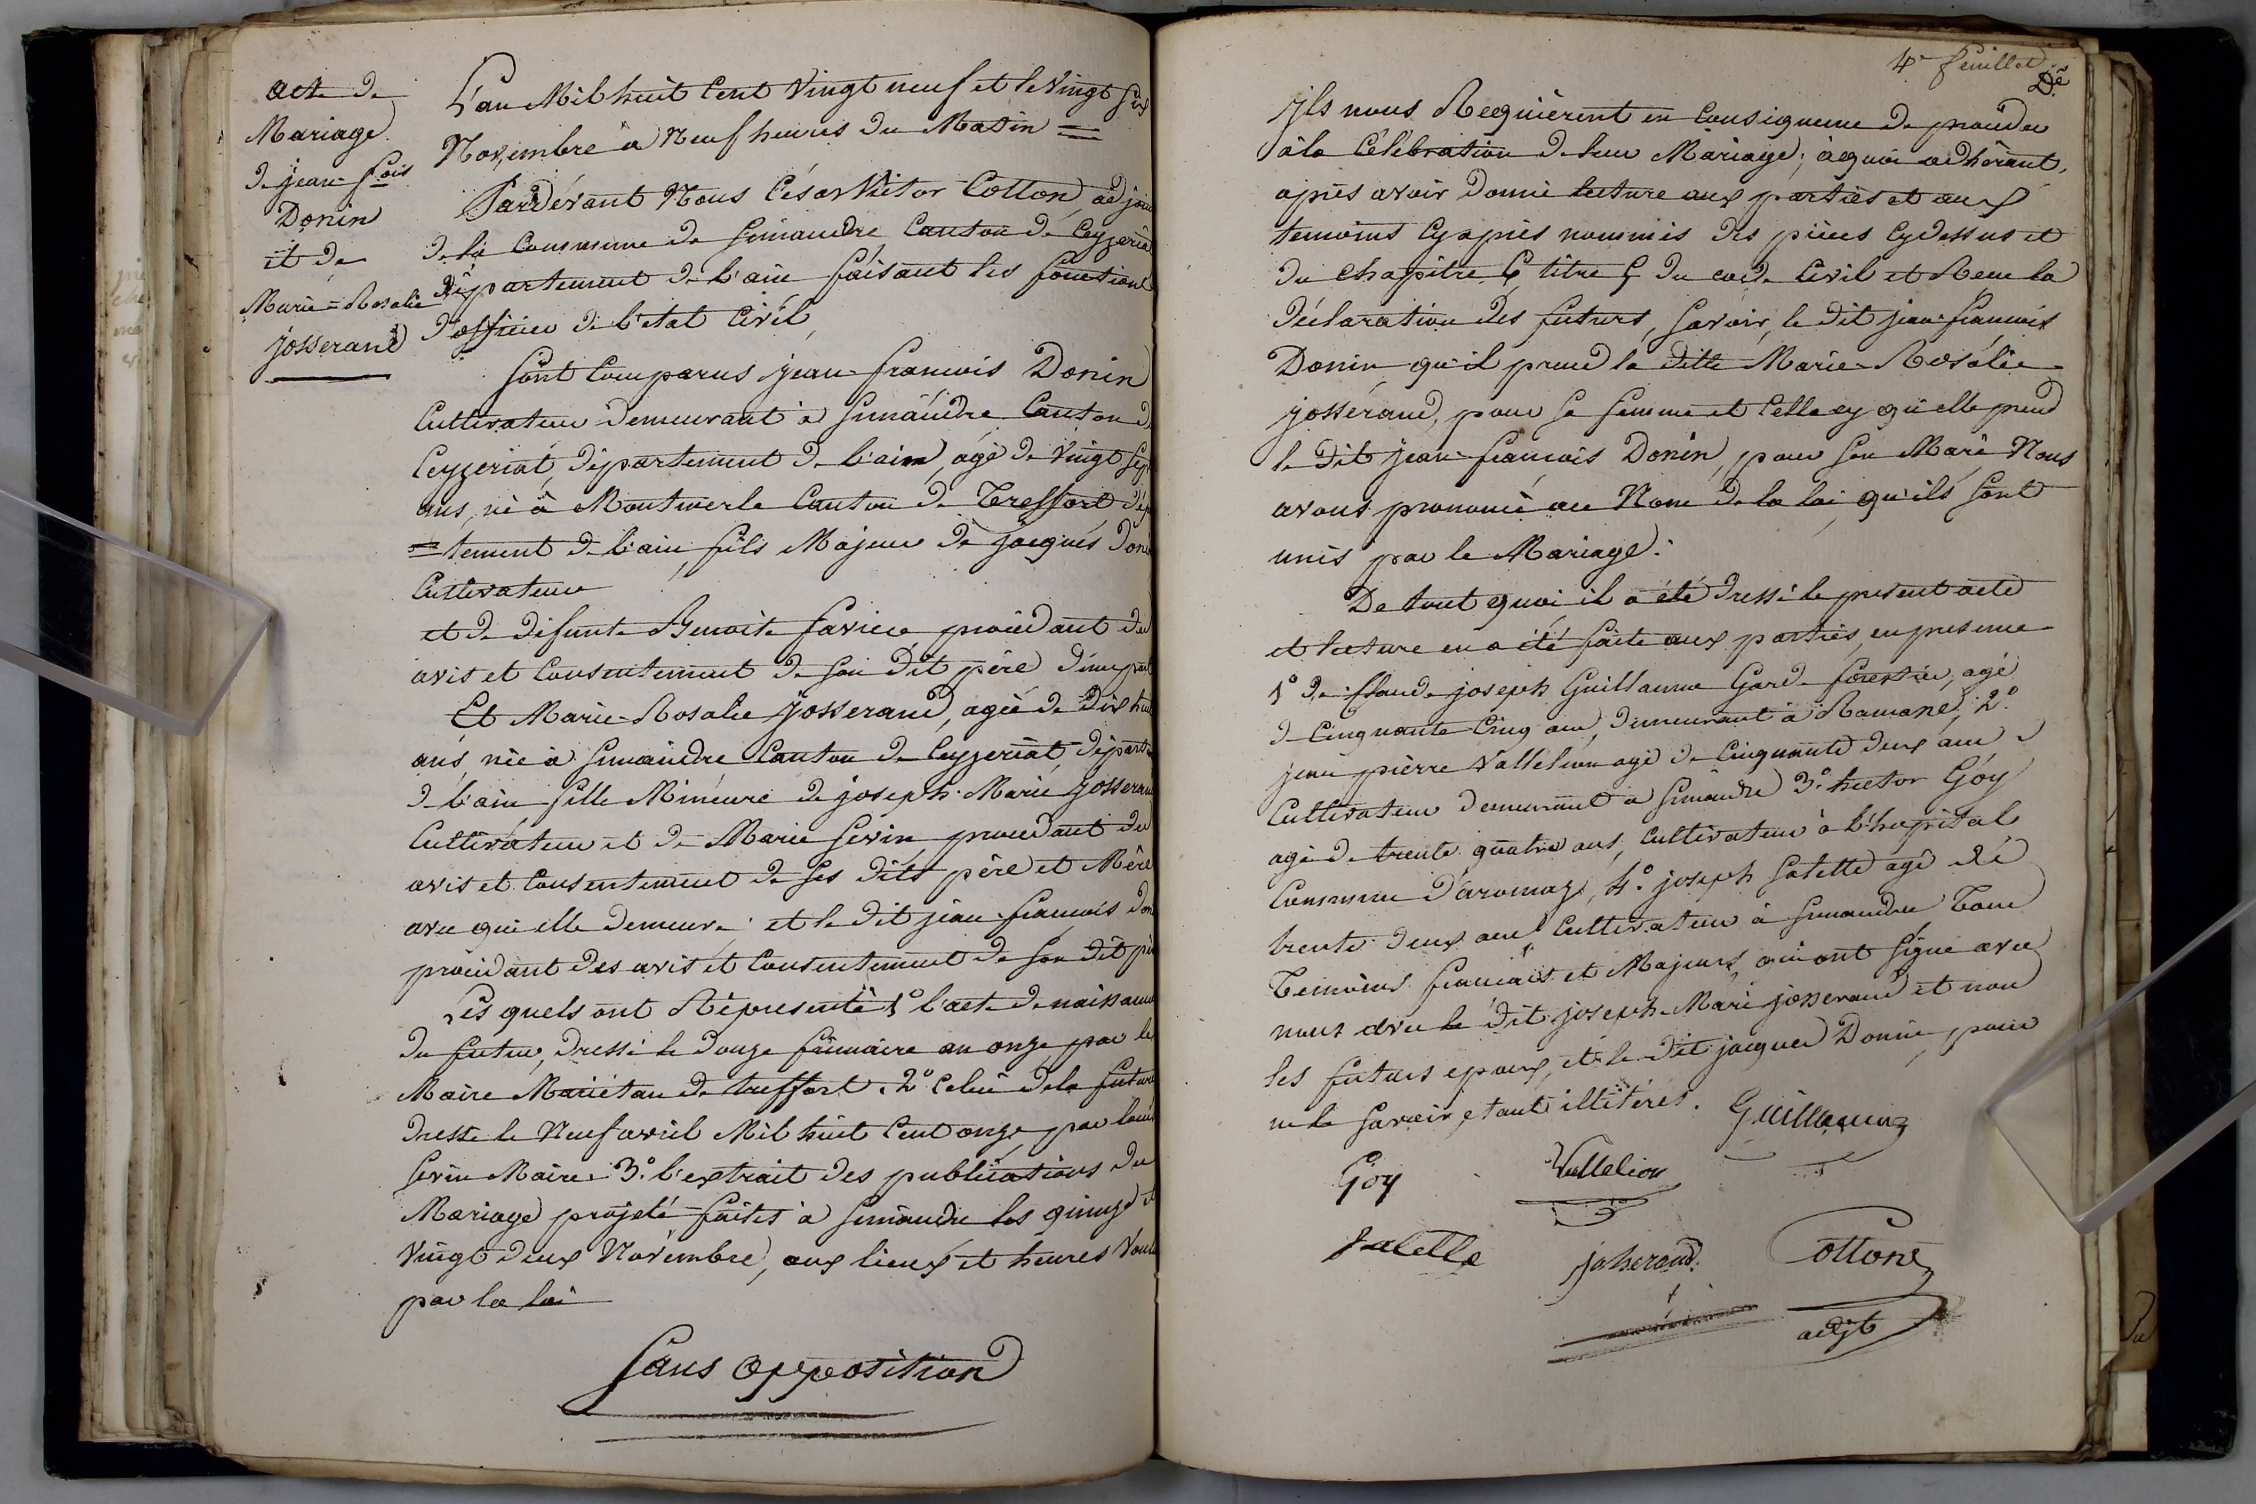 acte de
Mariage
de jean fois
Donin
et de
Marie=Rosalie
josserand
L'an Mil huit Cent Vingt neuf et le Vingt six
Novembre à Neuf heures du Matin =
Pardévant Nous César Victor Cotton, adjoin
de la Commune de simandre Canton de Ceyzeria
département de l'ain faisant les fonctions
d'officier de l'etat Civil,
sont Comparus jean-francois Donin
Cultivateur demeurant à simandre Canton de
Ceyzeriat, département de l'ain, agé de Vingt sep
ans, né à Montmerle Canton de Treffort dép
=tement de l'ain, fils Majeur de jacques Doni
Cultivateur
et de défunte Benoite favier procédant de
avis et Consentement de son dit père d'une part
Et Marie-Rosalie Josserand, agée de Dix huit
ans née à simandre Canton de Ceyzeriat départ
de l'ain fille Mineure de joseph-Marie Josseran
Cultivateur et de Marie sevin procedant de
avis et Consentement de ses dits père et Mère
avec qui elle demeure; et le dit jean-francois Don
procédant des avis et Consentement de son dit pè
Les quels ont Répresenté 1º l'acte de naissance
du futur, dressé le douze frimaire an onze par le
Maire Mariétan de treffort. 2º Celui de la future
dresse le Neuf avril Mil huit Cent onze par louis
sevin Maire. 3º l'extrait des publications du
Mariage projeté faites à simandre les quinze et
Vingt deux Novembre, aux lieux et heures Voulu
par la loi
Sans Opposition
4e feuillet
Dé
ils nous Requièrent en Consequence de proceder
à la Célébration de leur Mariage; à quoi adhérant,
apres avoir donné lecture aux parties et aux
temoins Cyaprès nommés des pièces Cydessus et
du Chapître 6 titre 5 du code Civil et Recu la
déclaration des futurs, savoir, le dit jean-francois
Donin qu'il prend la ditte Marie-Rosalie
josserand, pour sa femme et Celle cy qu'elle prend
le dit jean-francois Donin, pour son Mari Nous
avons prononcé au Nom de la loi qu'ils sont
unis par le Mariage.
De tout quoi il a été dressé le present acte
et lecture en a été faite aux parties, en presence
1º de Claude joseph Guillaume Garde forestier, agé
de Cinquante Cinq ans, demeurant à Ramane, 2º
jean pierre Vallelion agé de Cinquante deux ans
Cultivateur demeurant a simandre 3º hector Goy
agé de trente quatre ans, Cultivateur à l'hopital
Commune d'aromaz, 4º joseph salette agé de
trente deux ans Cultivateur à simandre Tous
Temoins francais et Majeurs qui ont signé avec
nous avec le dit joseph-Marie josserand et non
les futurs epoux, et le dit jacques Donin, pour
ne le savoir, etant illitérés. Guillaume
Goy Vallelion
salette josserand. Cotton
adjt